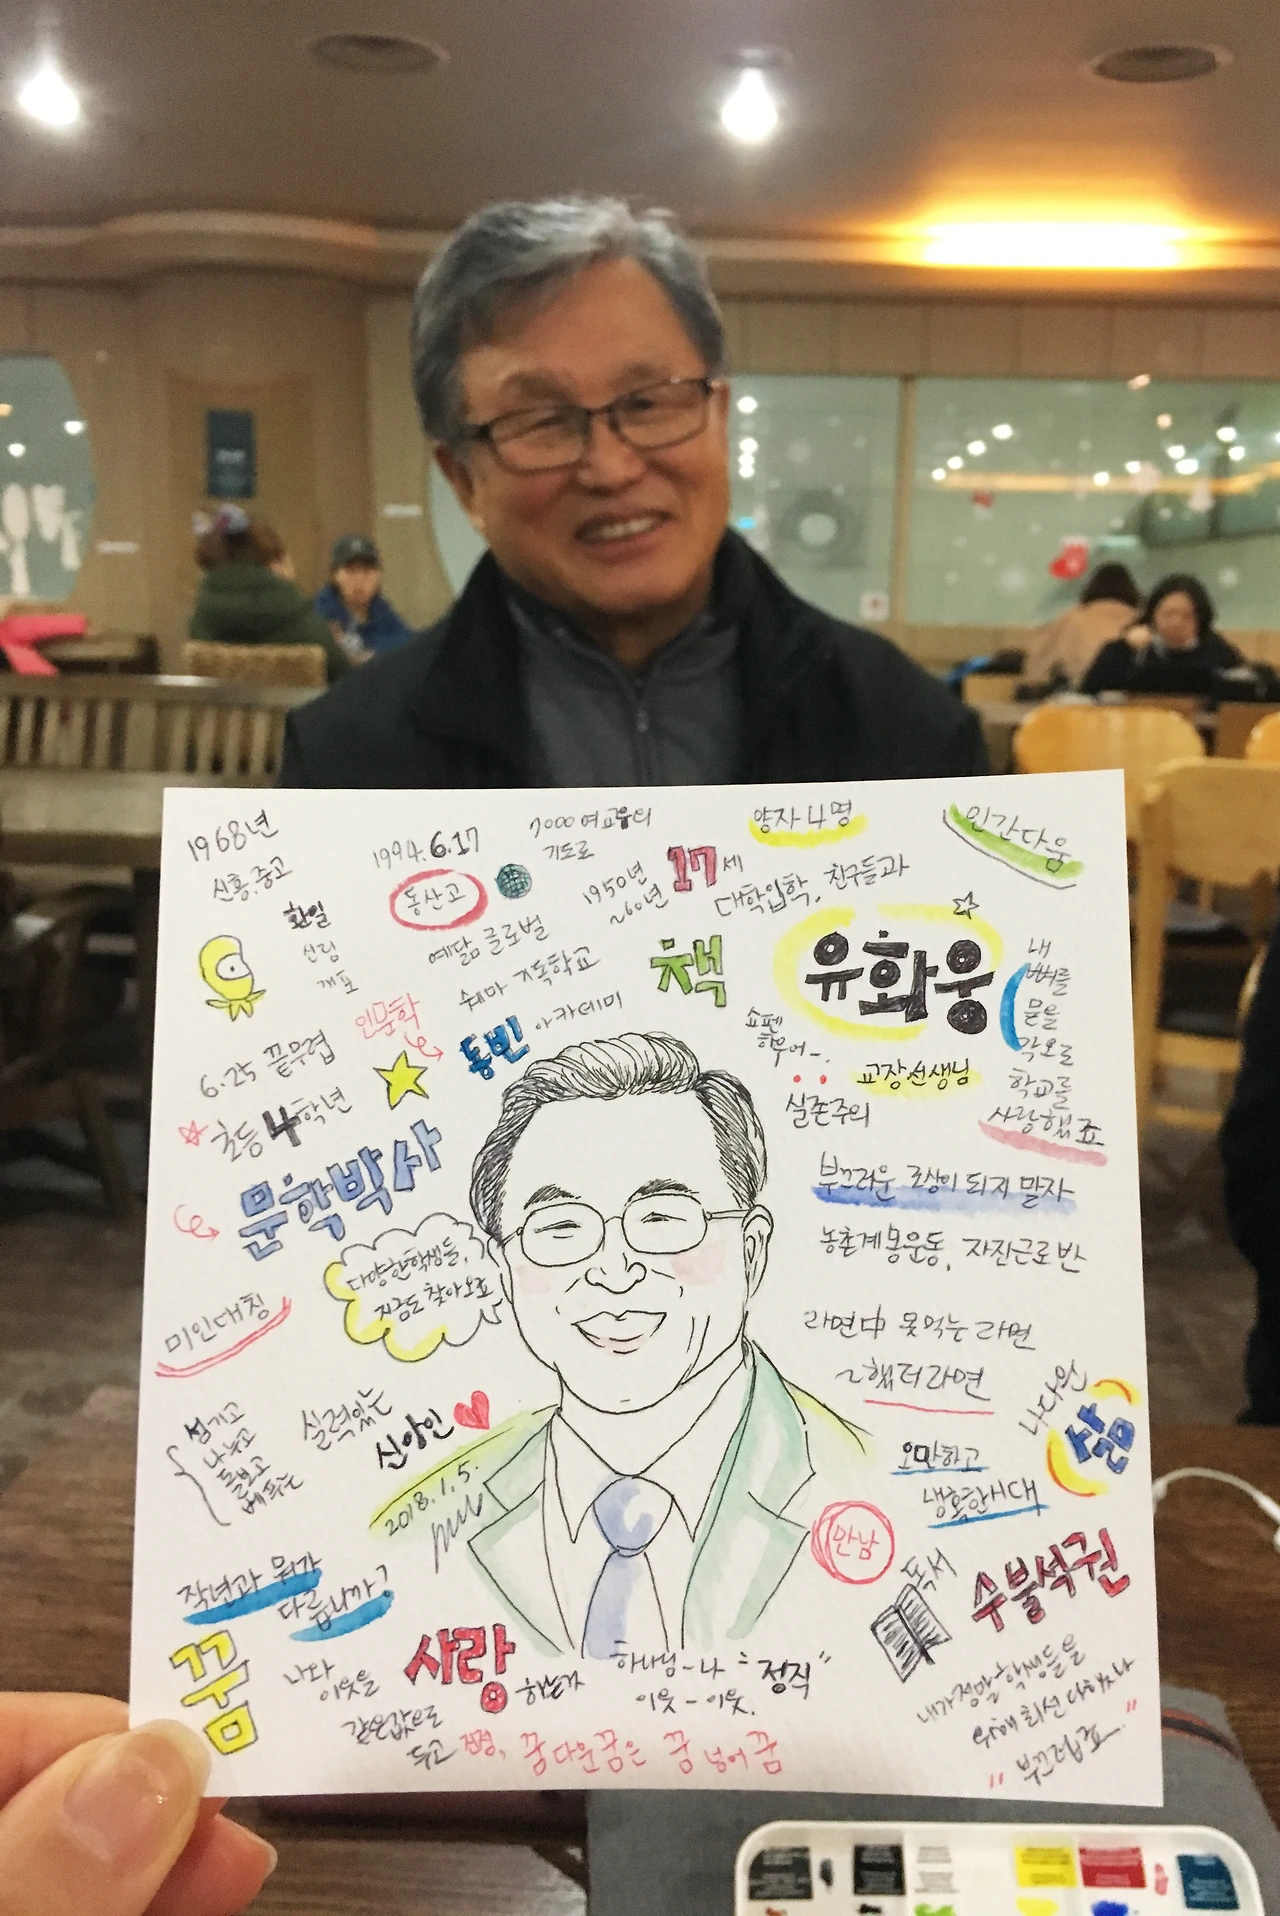 1968년
신흥.중고
환일
신림
개포
1994.6.17
동산고
7000 여교우의
기도로
예닮 글로벌
쉐마 기독학교
동빈 아카데미
인문학
6.25 끝무렵
초등 4학년
문학박사
1950년
~60년
17세
대학입학, 친구들과
양자 4명
인간다움
책
유화웅
교장선생님
쇼펜
하우어~.
실존주의
내
뼈를
묻을
각오로
학교를
사랑했죠
부끄러운 조상이 되지 말자
농촌계몽운동, 자진근로반
라면中 못먹는 라면
~했더라면
나다운
삶
오만하고
냉혹한시대
만남
독서
수불석권
내가 정말 학생들을
위해 최선 다했나
"부끄럽죠"
다양한학생들,
지금도 찾아오죠
미인대칭
섬기고
나누고
돌보고
베푸는
실력있는
신앙인
2018.1.5.
작년과 뭐가
다릅니까?
꿈
나와
이웃을
사랑하는가
같은값으로
두고
하나님-나
이웃-이웃.
"정직"
꿈다운꿈은 꿈 넘어 꿈